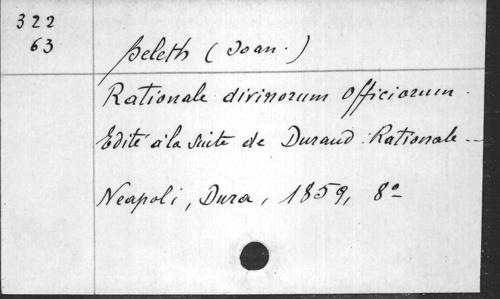 322
63
Beleth (Joan.)
Rationale divinorum Officiorum.
Edité à la suite de Durand Rationale...
Neapoli, Dura, 1859, 8º